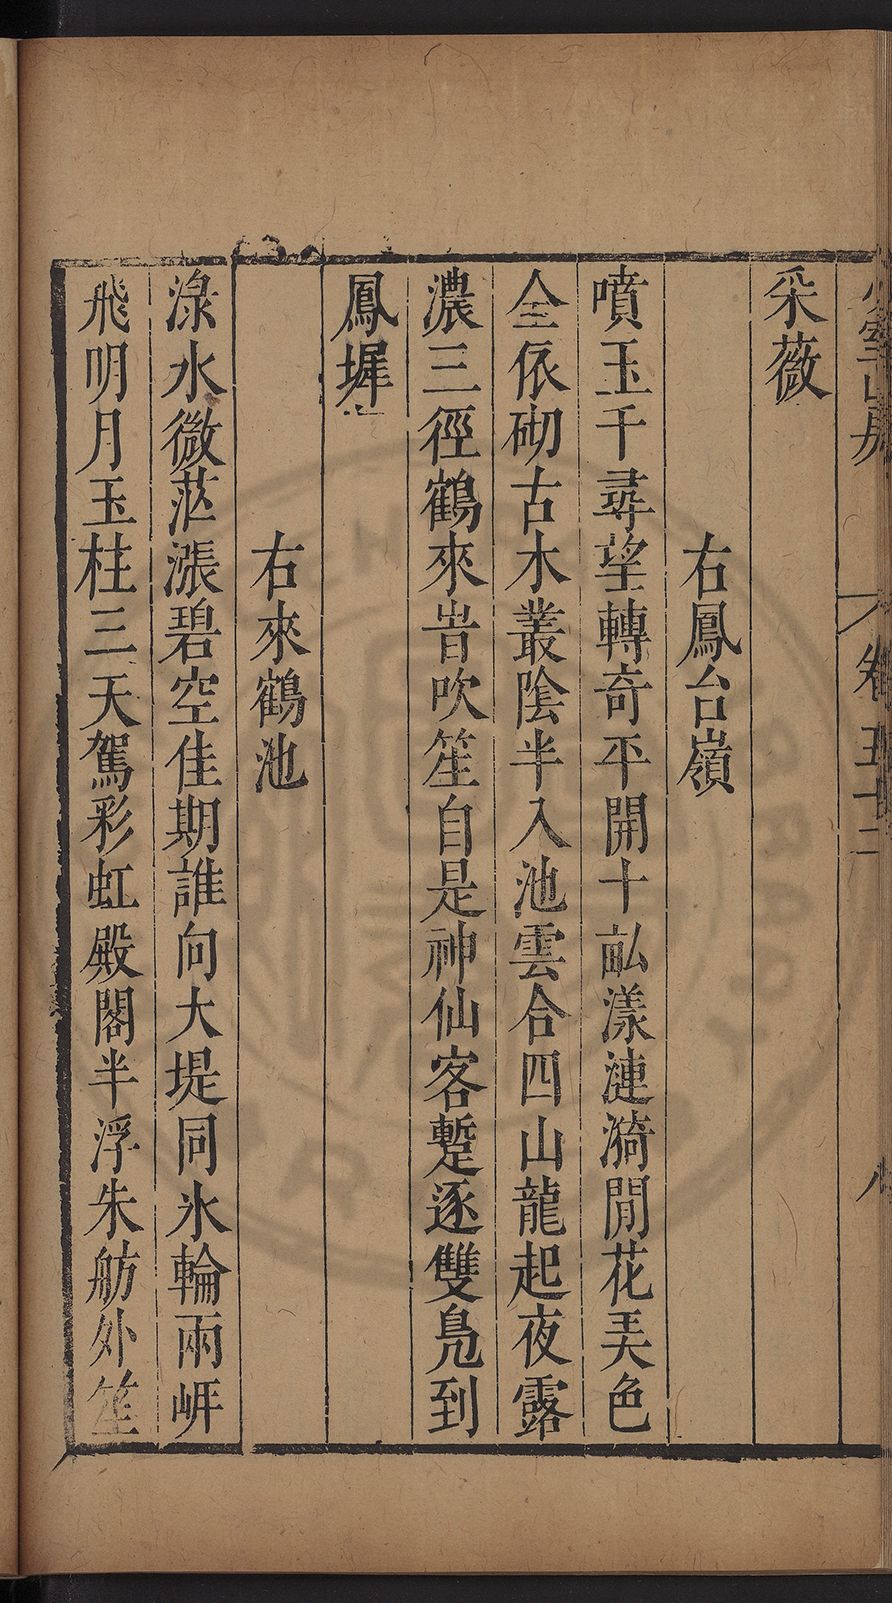 少室山房 卷五十二 八
采薇
右鳳台嶺
噴玉千尋望轉奇平開十畝漾漣漪閒花美色
全依砌古木叢陰半入池雲合四山龍起夜露
濃三徑鶴來旹吹笙自是神仙客蹔逐雙鳧到
鳳墀
右來鶴池
淥水微茫漲碧空佳期誰向大堤同氷輪兩岼
飛明月玉柱三天駕彩虹殿閣半浮朱舫外笙